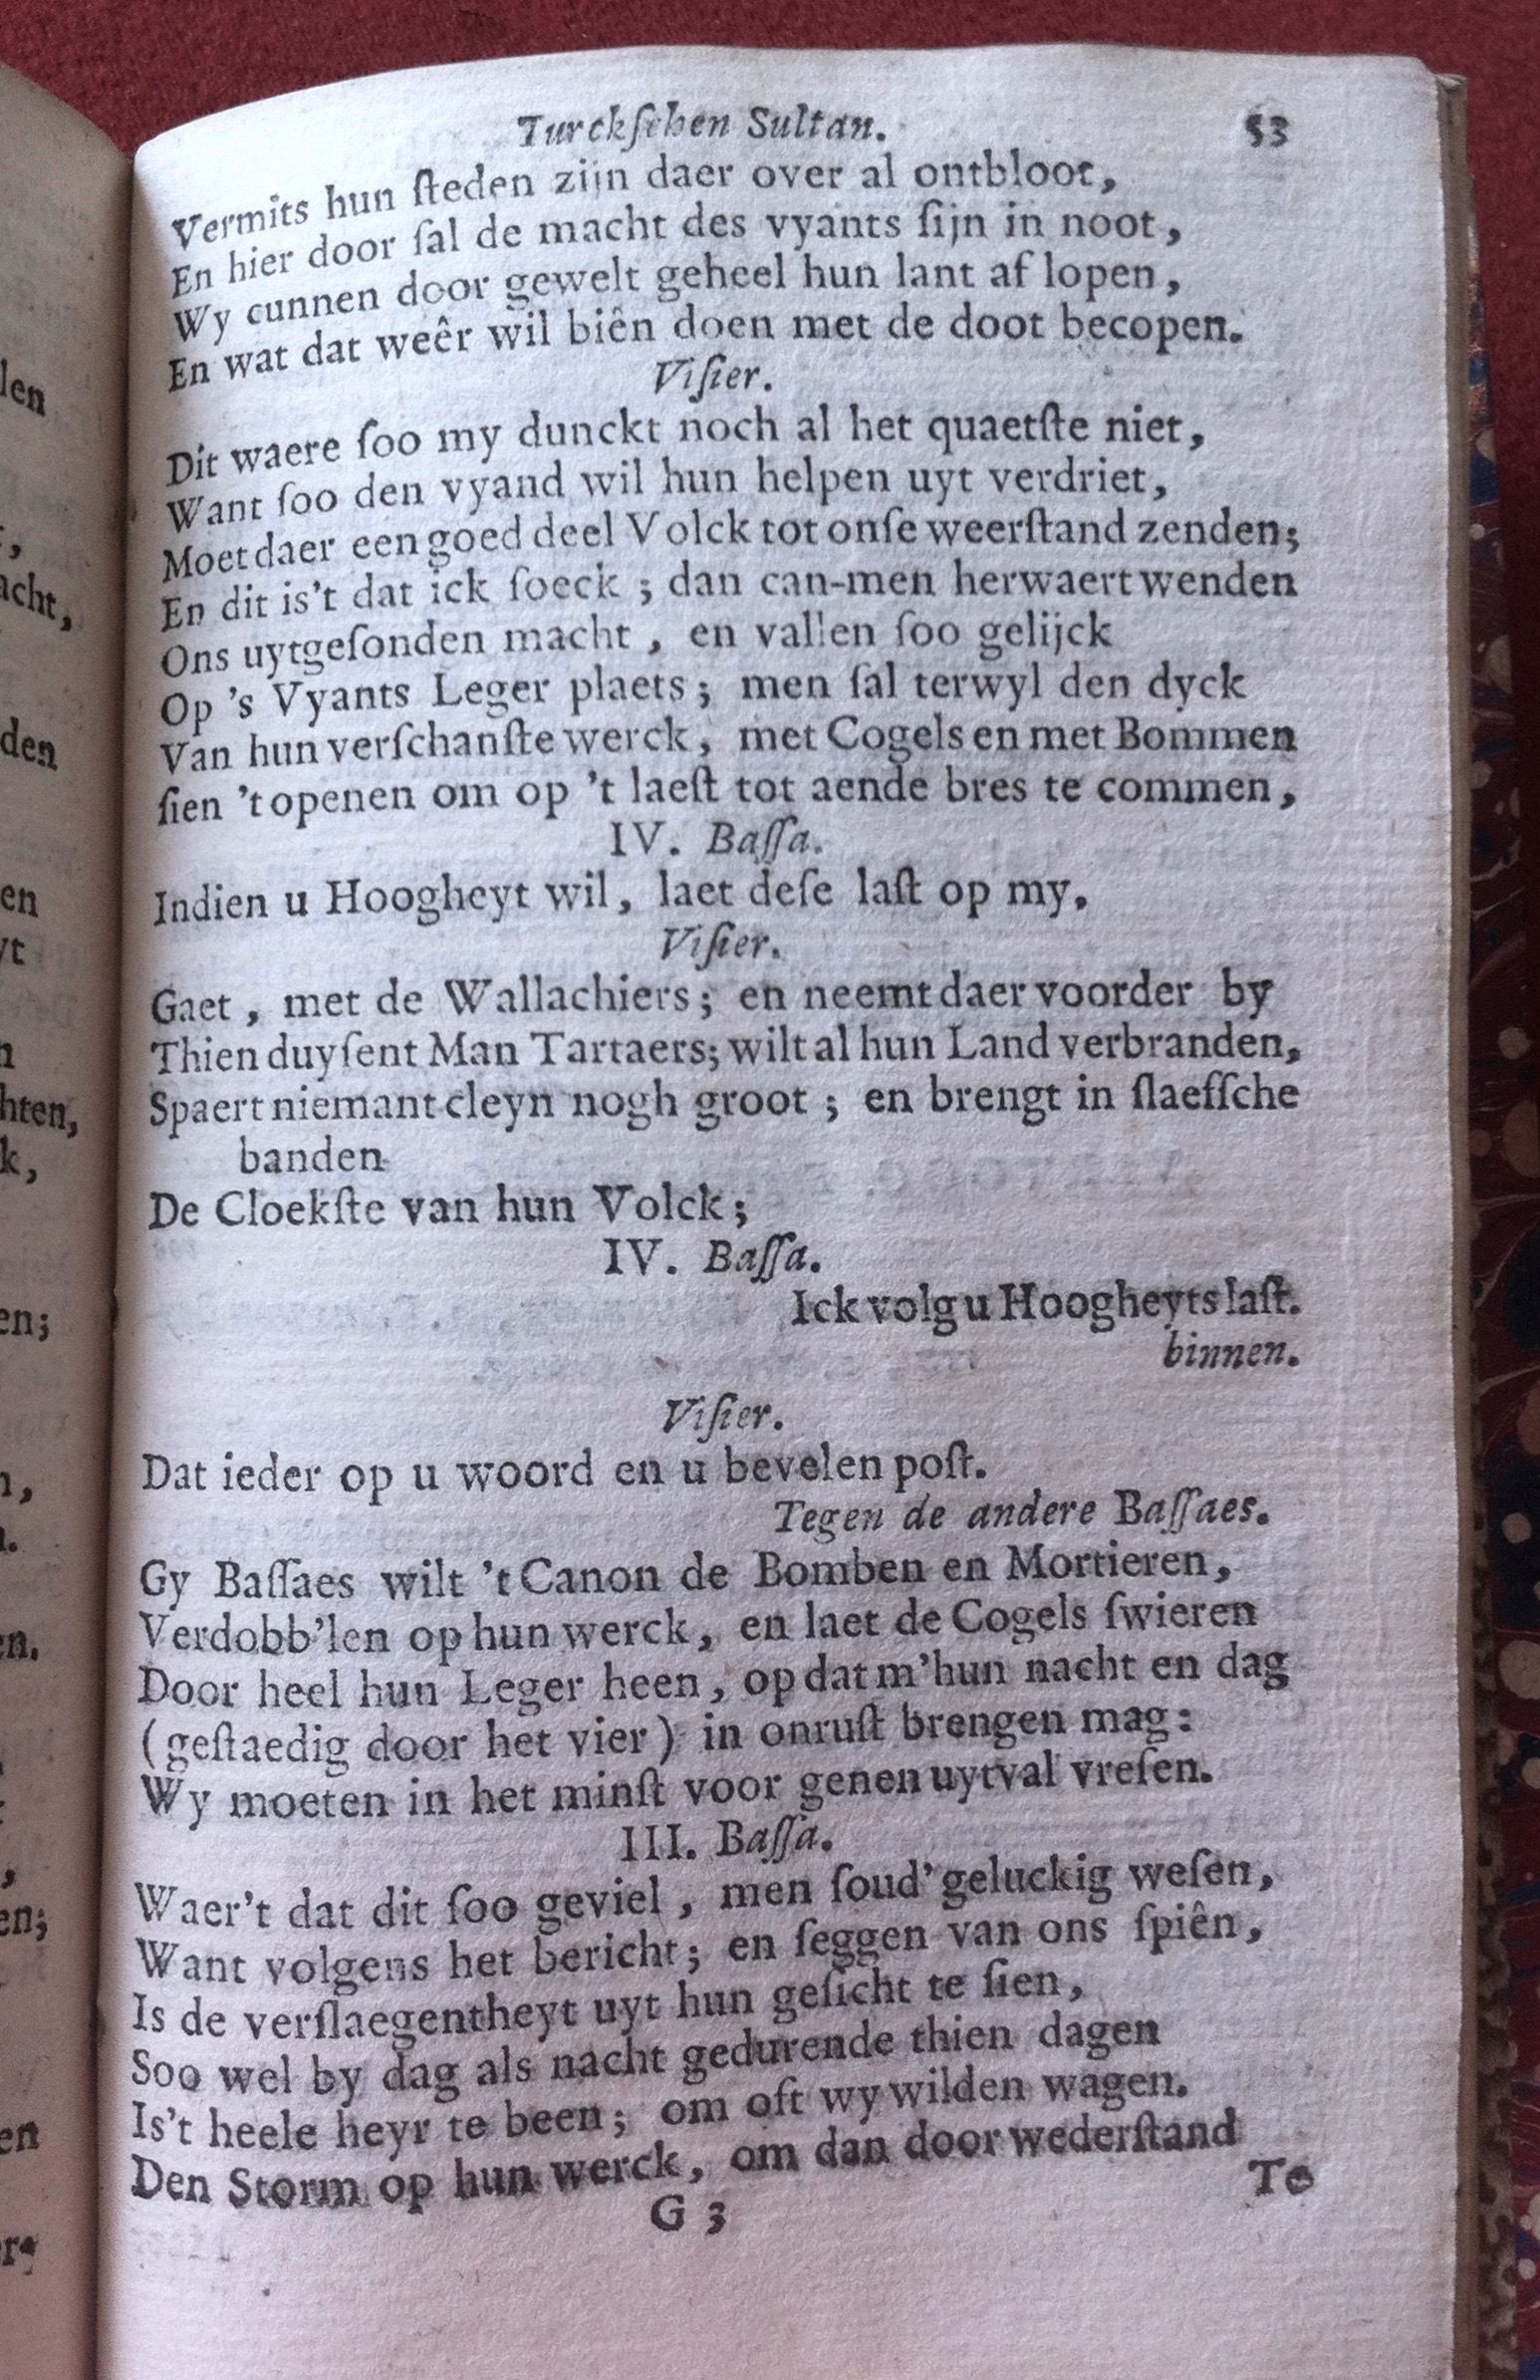 Turckſchen Sultan. 53
Vermits hun ſteden zijn daer over al ontbloot,
En hier door ſal de macht des vyants ſijn in noot,
Wy cunnen door gewelt geheel hun lant af lopen,
En wat dat weêr wil biên doen met de doot becopen.
Viſier.
Dit waere ſoo my dunckt noch al het quaetſte niet,
Want ſoo den vyand wil hun helpen uyt verdriet,
Moet daer een goed deel Volck tot onſe weerſtand zenden;
En dit is't dat ick ſoeck ; dan can-men herwaert wenden
Ons uytgeſonden macht , en vallen ſoo gelijck
Op 's Vyants Leger plaets; men ſal terwyl den dyck
Van hun verſchanſte werck, met Cogels en met Bommen
ſien 't openen om op 't laeſt tot aende bres te commen,
IV. Baſſa.
Indien u Hoogheyt wil, laet deſe laſt op my.
Viſier.
Gaet , met de Wallachiers; en neemt daer voorder by
Thien duyſent Man Tartaers; wilt al hun Land verbranden,
Spaert niemant cleyn nogh groot ; en brengt in ſlaefſche
banden
De Cloekſte van hun Volck;
IV. Baſſa.
Ick volg u Hoogheyts laſt.
binnen.
Viſier.
Dat ieder op u woord en u bevelen poſt.
Tegen de andere Baſſaes.
Gy Baſſaes wilt 't Canon de Bomben en Mortieren,
Verdobb'len op hun werck, en laet de Cogels ſwieren
Door heel hun Leger heen, op dat m'hun nacht en dag
(geſtaedig door het vier) in onruſt brengen mag:
Wy moeten in het minſt voor genen uytval vreſen.
III. Baſſa.
Waer't dat dit ſoo geviel , men ſoud' geluckig weſen,
Want volgens het bericht; en ſeggen van ons ſpiên,
Is de verſlaegentheyt uyt hun geſicht te ſien,
Soo wel by dag als nacht gedurende thien dagen
Is't heele heyr te been; om oft wy wilden wagen.
Den Storm op hun werck, om dan door wederſtand
G 3 To
len
,
acht,
den
en
yt
n
hten,
k,
en;
n,
.
en.
,
en;
en